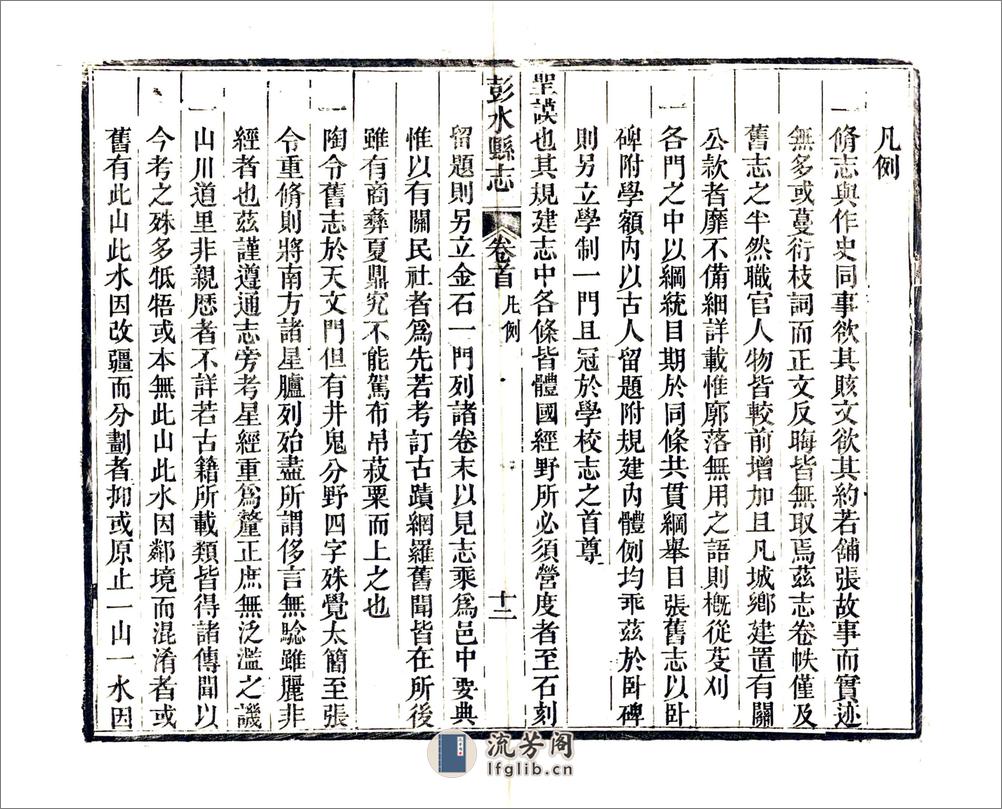 凡例
一脩志與作史同事欲其賅文欲其約若舖張故事而實迹
無多或蔓衍枝詞而正文反晦皆無取焉茲志卷帙僅及
舊志之半然職官人物皆較前增加且凡城鄉建置有關
公款者靡不備細詳載惟廓落無用之語則槪從芟刈
一各門之中以綱統目期於同條共貫綱舉目張舊志以卧
碑附學額內以古人留題附規建內體例均乖茲於卧碑
則另立學制一門且冠於學校志之首尊
聖謨也其規建志中各條皆體國經野所必須營度者至石刻
彭水縣志 卷首 凡例 十二
留題則另立金石一門列諸卷末以見志乘爲邑中要典
惟以有關民社者爲先若考訂古蹟網羅舊聞皆在所後
雖有商彝夏鼎究不能駕布帛菽粟而上之也
一陶令舊志於天文門但有井鬼分野四字殊覺太簡至張
令重脩則將南方諸星臚列殆盡所謂侈言無驗雖麗非
經者也茲謹遵通志旁考星經重爲釐正庶無泛濫之譏
一山川道里非親歷者不詳若古籍所載類皆得諸傳聞以
今考之殊多牴牾或本無此山此水因鄰境而混淆者或
舊有此山此水因改疆而分劃者抑或原止一山一水因
流芳阁
lfglib.cn